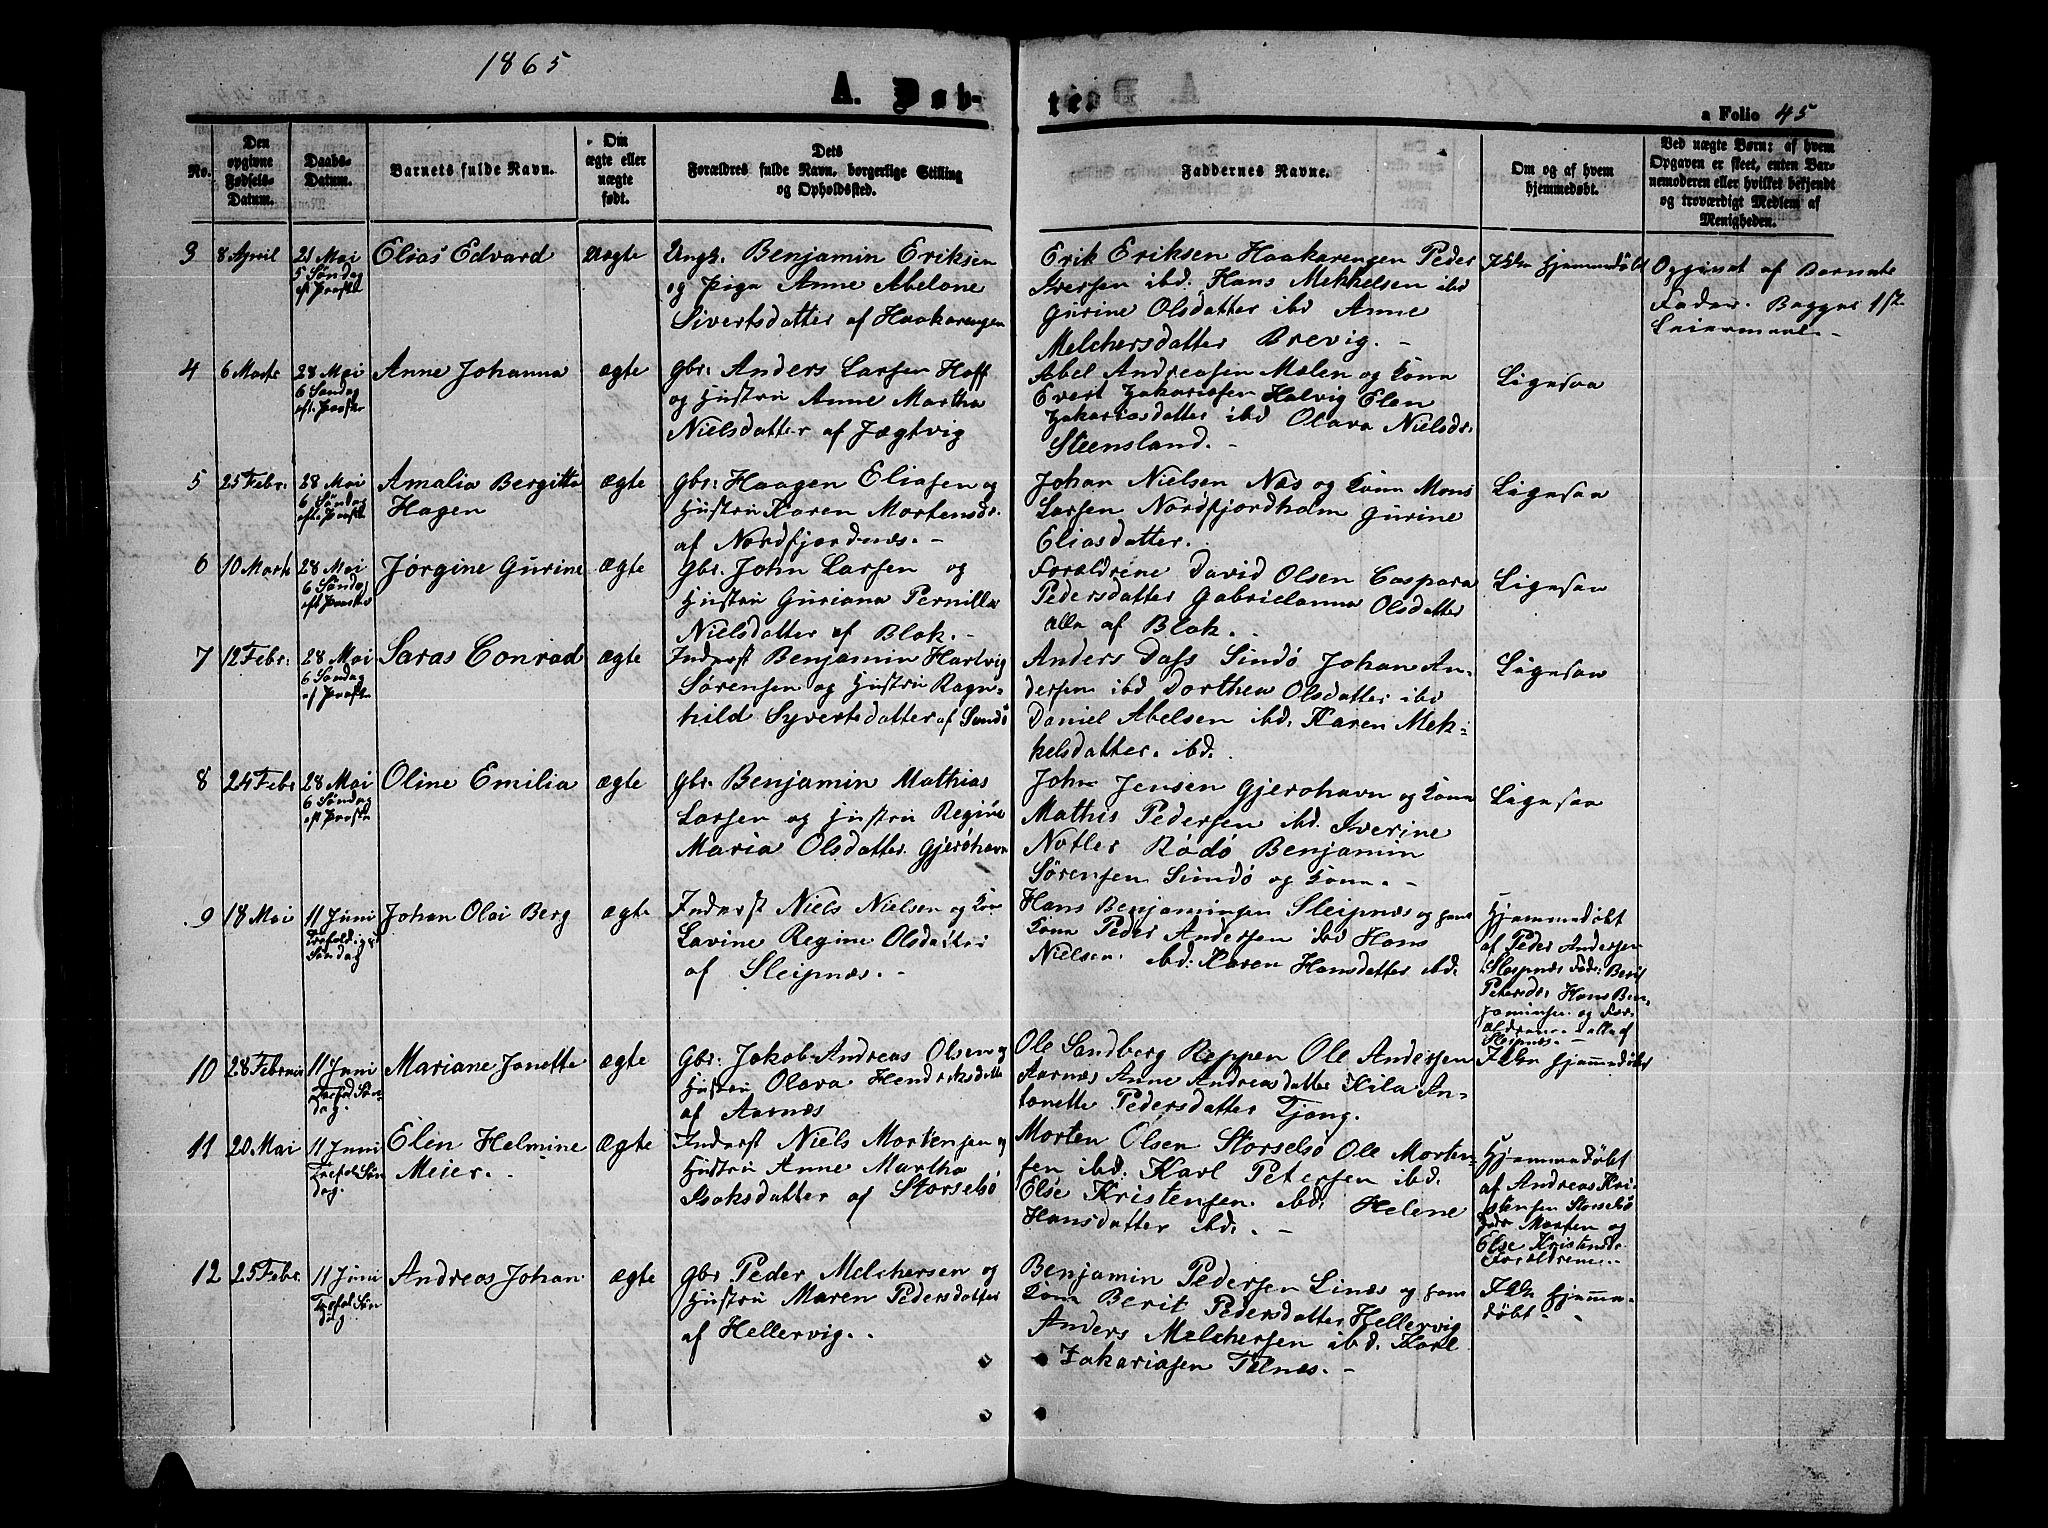 1865
A. Døb-
ter
a Folio 45
No.
Den opgivne Fødsels-Datum.
Daabs-Datum.
Barnets fulde Navn.
Om ægte eller uægte født.
Dets Forældres fulde Navn, borgerlige Stilling og Opholdssted.
Faddernes Navne.
Om og af hvem hjemmedøbt.
Ved uægte Børn: af hvem Opgaven er skeet, enten Barnemoderen eller hvilket bekjendt og troværdigt Medlem af Menigheden.
3 8 April 21 Mai Elias Edvard Uægte Ungk. Benjamin Eriksen
5 Søndag
og Pige Anne Abelone
Sivertsdatter af Haakarengen
Erik Eriksen Haakarengen Peder
Iversen ibd. Hans Mekkelsen ibd
Gurine Olsdatter ibd Anne
Melchersdatter Brevig. -
Ikke hjemmedøbt
Opgivet af Barnets
Fader. Begges 1ste
Leiermaal -
4 6 Marts 28 Mai Anne Johanna ægte gbr: Anders Larsen Hoff
6 Søndag
eft. Paaske
og Hustru Anne Martha
Nielsdatter af Jægtvig
Abel Andreasen Mælen og Kona
Evert Zakariasen Halvig Elen
Zakariasdatter ibd Olava Nielsdr.
Steensland. -
Ligesaa
5 25 Febr. 28 Mai Amalia Bergitta ægte gbr: Haagen Eliasen og
6 Søndag
eft. Paaske
Hagen
Hustru Karen Mortensdr.
af Nordfjordnæs. -
Johan Nielsen Næs og Kona Mons
Larsen Nordfjordholm Gurine
Eliasdatter.
Ligesaa
6 10 Marts 28 Mai Jørgine Gurine ægte gbr. John Larsen og
6 Søndag
eft. Paaske
Hustru Guriana Pernilla
Nielsdatter af Blok. -
Forældrene David Olsen Caspara
Pedersdatter Gabrielanna Olsdatter
alle af Blok. -
Ligesaa
7 12 Febr. 28 Mai Saras Conrad ægte Inderst Benjamin Hartvig
6 Søndag
ef Paaske
Sørensen og Hustru Ragn-
hild Syvertsdatter af Sundø
Anders Dass Sundø Johan An-
dersen ibd Dorthea Olsdatter ibd
Daniel Abelsen ibd. Karen Mek-
kelsdatter. ibd.
Ligesaa
8 24 Febr 28 Mai Oline Emilia ægte gbr. Benjamin Mathias
6 Søndag
eft Paaske
Larsen og Hustru Regine
Maria Olsdatter Gjerøhavn
John Jensen Gjerøhavn og Kona
Mathis Pedersen ibd. Iverine
Notler Rødø Benjamin
Sørensen Sundø og Kona. -
Ligesaa
9 18 Mai 11 Juni Johan Olai Berg ægte Inderst Niels Nielsen og Kone
Søndag
Lavine Regine Olsdatter
af Sleipnæs. -
Hans Benjaminsen Sleipnæs og hans
Kona Peder Andersen ibd Hans
Nielsen. ibd. Karen Hansdatter ibd.
Hjemmedøbt
af Peder Andersen
Sleipnæs Fadr: Berit
Petersdr. Hans Ben-
jaminsen og For-
ældrene - alle af
Sleipnæs. -
10 28 Februar 11 Juni Mariane Janette ægte Gbr. Jakob Andreas Olsen og
Hustru Olava Hendriksdatter
af Aarnæs
Ole Sandberg Reppen Ole Andersen
Aarnæs Anne Andreasdatter Kila An-
tonette Pedersdatter Tjong.
Ikke hjemmedøbt
11 20. Mai 11 Juni Elen Helmine Ægte Inderst Niels Mortensen og
Trefol. Søn
dag.
Meier. -
Hustru Anne Martha
Isaksdatter af Storselsø
Morten Olsen Storselsø Ole Morten-
sen ibd. Karl Petersen ibd.
Else Kristensen. ibd. Helene
Hansdatter ibd. -
Hjemmedøbt
af Andreas Kri-
stensen Storselsø
Fadr Morten og
Else Kristensdr.
Forældrene. -
12 25 Febr. 11 Juni Andreas Johan ægte gbr Peder Melchersen og
Trefol Søn
dag.
Hustru Maren Pedersdatter
af Hellervig. .
Benjamin Pedersen Linæs og hans
Kona Berit Pedersdatter Hellervig
Anders Melchersen ibd. Karl
Zakariasen Telnæs. -
Ikke hjemme-
døbt. -